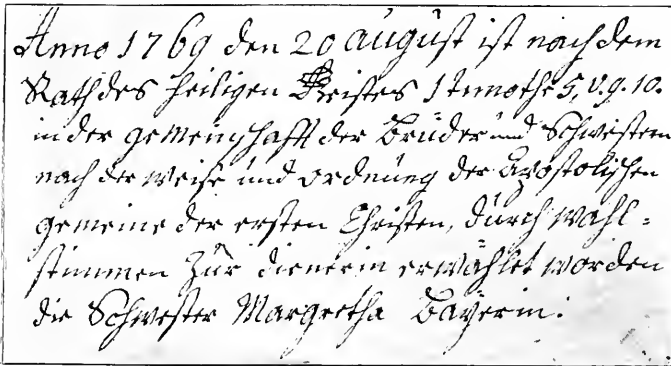 Anno 1769 den 20 august ist nach dem
Rath des heiligen Geistes 1 timothe 5, v. 9. 10.
in der gemeinschafft der Brüder und Schwestern
nach der weise und ordnung der apostolischen
gemeine der ersten Christen, durch wahl=
stimmen zur dienerin erwählet worden
die Schwester Margretha Bayerin.